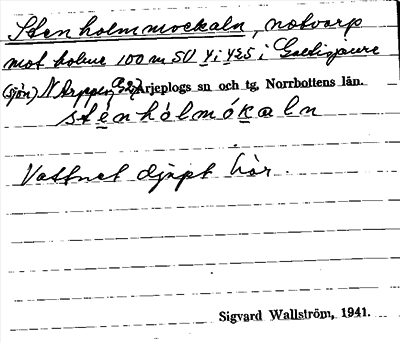 Stenholmmockaln, notvarp
mot holme 100 m SV y i 435 i Galtisjaure
(sjön) N Arjeplogs sn och tg, Norrbottens län.
stènhòlmókaln
Vattnet djupt här.
Sigvard Wallström, 1941.